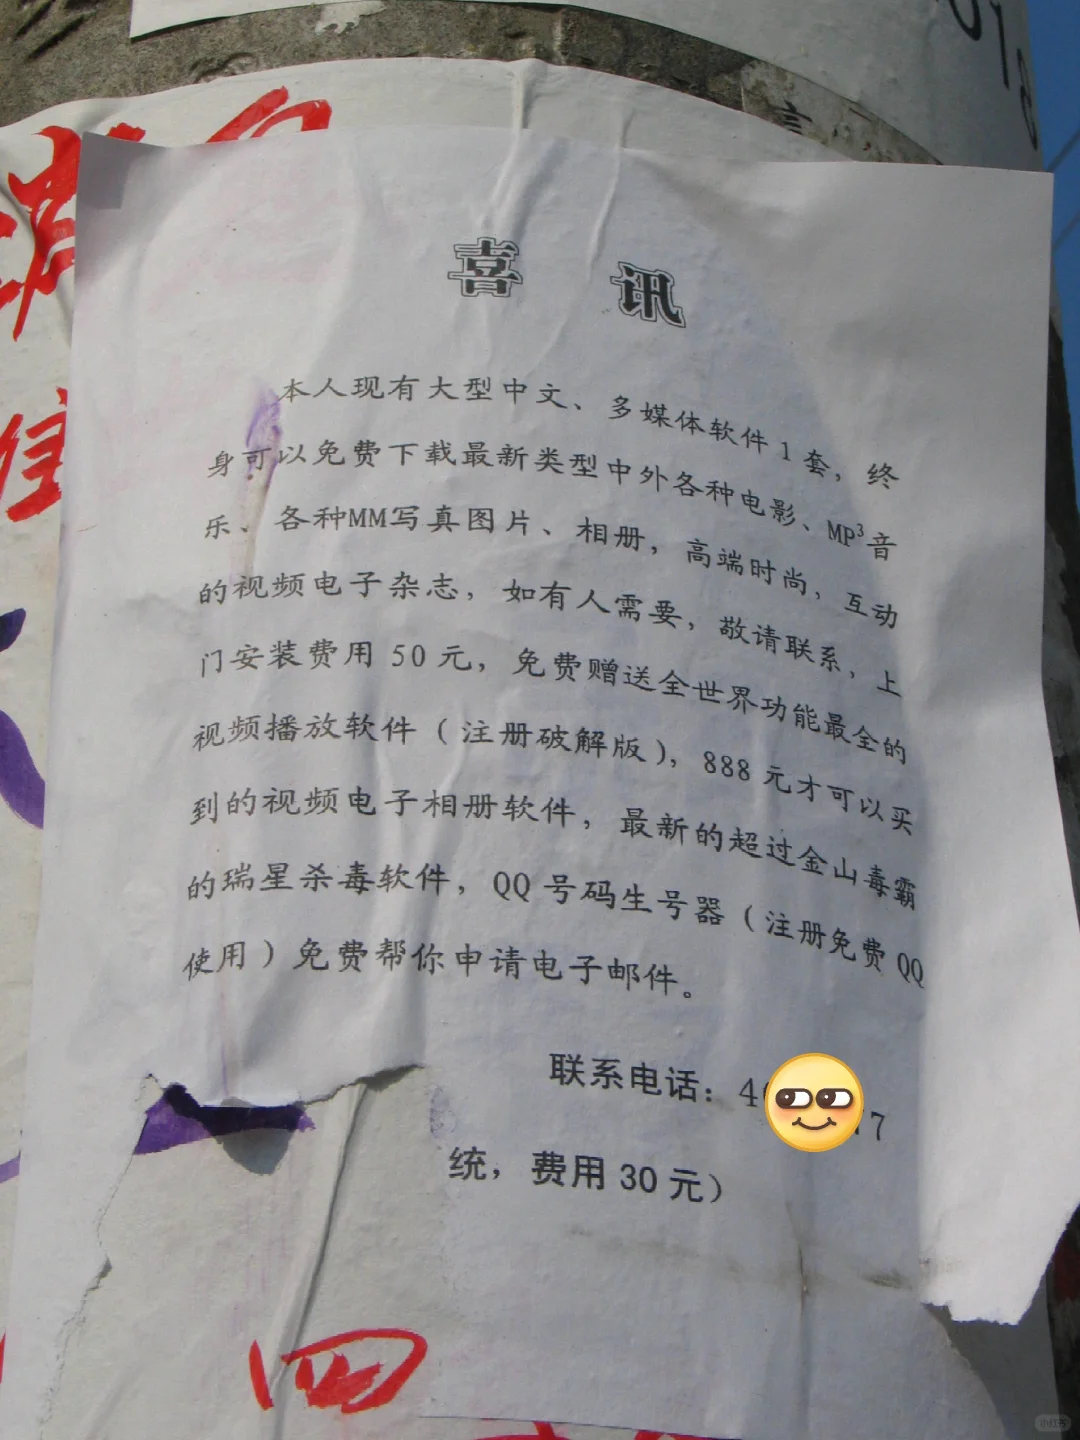 喜 讯
本人现有大型中文、多媒体软件1套，终
身可以免费下载最新类型中外各种电影、MP3音
乐、各种MM写真图片、相册，高端时尚，互动
的视频电子杂志，如有人需要，敬请联系，上
门安装费用50元，免费赠送全世界功能最全的
视频播放软件（注册破解版），888元才可以买
到的视频电子相册软件，最新的超过金山毒霸
的瑞星杀毒软件，QQ号码生号器（注册免费QQ
使用）免费帮你申请电子邮件。
联系电话：4 7
统，费用30元）
四
小红书